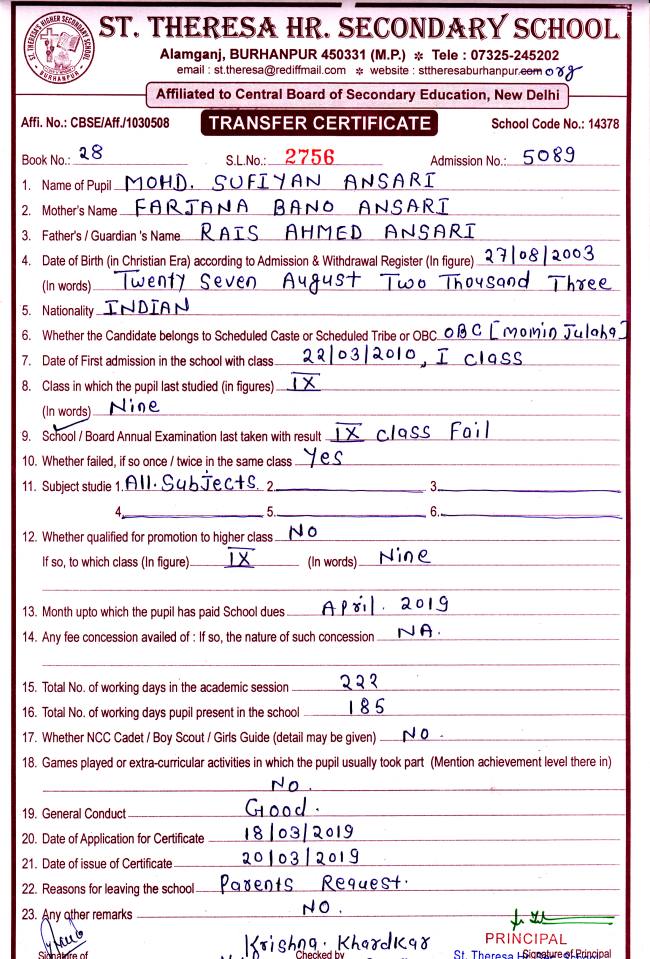 ST. THERESA HR. SECONDARY SCHOOL
ST. THERESA'S HIGHER SECONDARY SCHOOL
BURHANPUR
Alamganj, BURHANPUR 450331 (M.P.) * Tele : 07325-245202
email : st.theresa@rediffmail.com * website : sttheresaburhanpur.com org
Affiliated to Central Board of Secondary Education, New Delhi
Affi. No.: CBSE/Aff./1030508 TRANSFER CERTIFICATE School Code No.: 14378
Book No.: 28 S.L.No.: 2756 Admission No.: 5089
1. Name of Pupil MOHD. SUFIYAN ANSARI
2. Mother's Name FARJANA BANO ANSARI
3. Father's / Guardian 's Name RAIS AHMED ANSARI
4. Date of Birth (in Christian Era) according to Admission & Withdrawal Register (In figure) 27/08/2003
(In words) Twenty Seven August Two Thousand Three
5. Nationality INDIAN
6. Whether the Candidate belongs to Scheduled Caste or Scheduled Tribe or OBC OBC [Momin Julaha]
7. Date of First admission in the school with class 22/03/2010, I class
8. Class in which the pupil last studied (in figures) IX
(In words) Nine
9. School / Board Annual Examination last taken with result IX class Fail
10. Whether failed, if so once / twice in the same class Yes
11. Subject studie 1. All. Subjects 2. 3.
4. 5. 6.
12. Whether qualified for promotion to higher class No
If so, to which class (In figure) IX (In words) Nine
13. Month upto which the pupil has paid School dues April. 2019
14. Any fee concession availed of : If so, the nature of such concession NA.
15. Total No. of working days in the academic session 222
16. Total No. of working days pupil present in the school 185
17. Whether NCC Cadet / Boy Scout / Girls Guide (detail may be given) No.
18. Games played or extra-curricular activities in which the pupil usually took part (Mention achievement level there in)
No.
19. General Conduct Good.
20. Date of Application for Certificate 18/03/2019
21. Date of issue of Certificate 20/03/2019
22. Reasons for leaving the school Parents Request.
23. Any other remarks No.
Krishna. Khardkar PRINCIPAL
Signature of Checked by St. Theresa Signature of Principal